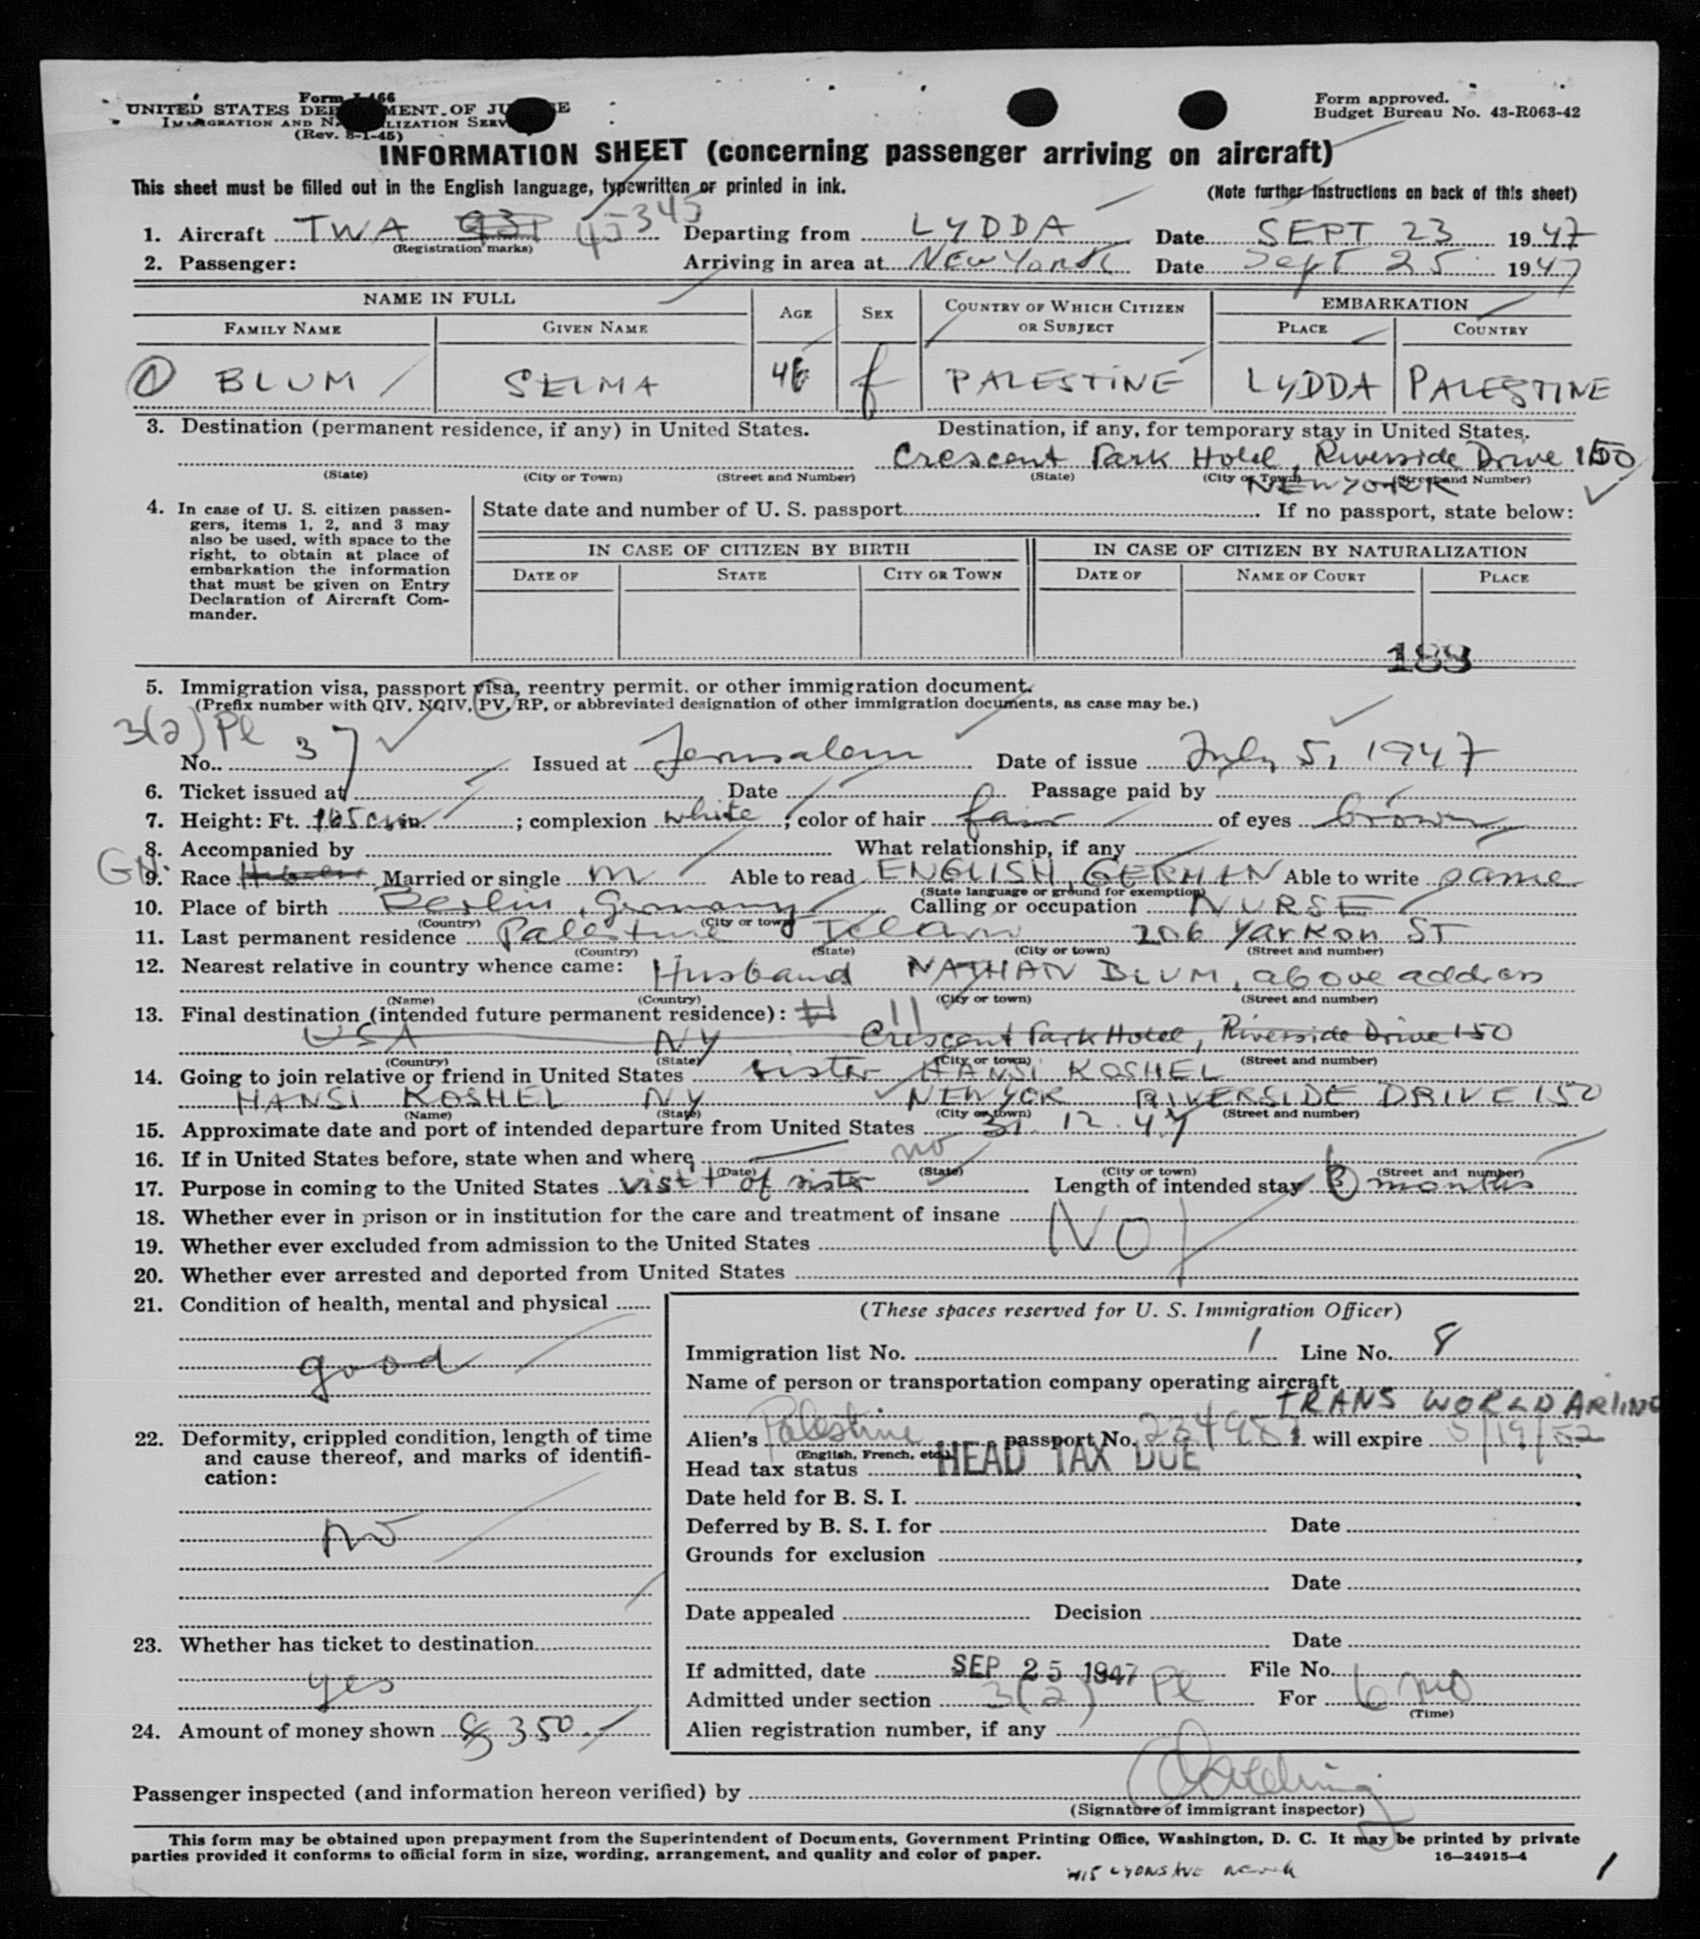 Form I-466
UNITED STATES DEPARTMENT OF JUSTICE
IMMIGRATION AND NATURALIZATION SERVICE
(Rev. 8-1-45)
Form approved.
Budget Bureau No. 43-R063-42
INFORMATION SHEET (concerning passenger arriving on aircraft)
This sheet must be filled out in the English language, typewritten or printed in ink. (Note further instructions on back of this sheet)
1. Aircraft TWA 45345 Departing from LYDDA Date SEPT 23 1947
(Registration marks)
2. Passenger: Arriving in area at NEW YORK Date Sept 25 1947
NAME IN FULL AGE SEX COUNTRY OF WHICH CITIZEN OR SUBJECT EMBARKATION
FAMILY NAME GIVEN NAME PLACE COUNTRY
1 BLUM SELMA 46 f PALESTINE LYDDA PALESTINE
3. Destination (permanent residence, if any) in United States. Destination, if any, for temporary stay in United States.
Crescent Park Hotel, Riverside Drive 150
(State) (City or Town) (Street and Number) (State) (City or Town) (Street and Number)
NEW YORK
4. In case of U. S. citizen passengers, items 1, 2, and 3 may also be used, with space to the right, to obtain at place of embarkation the information that must be given on Entry Declaration of Aircraft Commander.
State date and number of U. S. passport If no passport, state below:
IN CASE OF CITIZEN BY BIRTH IN CASE OF CITIZEN BY NATURALIZATION
DATE OF STATE CITY OR TOWN DATE OF NAME OF COURT PLACE
188
5. Immigration visa, passport visa, reentry permit, or other immigration document.
(Prefix number with QIV, NQIV, PV, RP, or abbreviated designation of other immigration documents, as case may be.)
3(2) Pl
No. 37 Issued at Jerusalem Date of issue July 5, 1947
6. Ticket issued at Date Passage paid by
7. Height: Ft. 165 cm in. ; complexion white ; color of hair fair of eyes brown
8. Accompanied by What relationship, if any
9. Race Married or single m Able to read ENGLISH, GERMAN Able to write same
(State language or ground for exemption)
10. Place of birth Berlin, Germany Calling or occupation NURSE
(Country) (City or town)
11. Last permanent residence Palestine Tel Aviv 206 Yarkon ST
(Country) (State) (City or town) (Street and number)
12. Nearest relative in country whence came: Husband NATHAN BLUM, above address
(Name) (Country) (City or town) (Street and number)
13. Final destination (intended future permanent residence):
USA NY Crescent Park Hotel, Riverside Drive 150
(Country) (State) (City or town) (Street and number)
14. Going to join relative or friend in United States sister HANSI KOSHEL
HANSI KOSHEL NY NEWYORK RIVERSIDE DRIVE 150
(Name) (State) (City or town) (Street and number)
15. Approximate date and port of intended departure from United States 31.12.47
16. If in United States before, state when and where no
(Date) (State) (City or town) (Street and number)
17. Purpose in coming to the United States visit of sister Length of intended stay months
18. Whether ever in prison or in institution for the care and treatment of insane
19. Whether ever excluded from admission to the United States No
20. Whether ever arrested and deported from United States
21. Condition of health, mental and physical
good
22. Deformity, crippled condition, length of time and cause thereof, and marks of identification:
no
23. Whether has ticket to destination
yes
24. Amount of money shown $ 350.-
(These spaces reserved for U. S. Immigration Officer)
Immigration list No. 1 Line No. 8
Name of person or transportation company operating aircraft
TRANS WORLD AIRLINE
Alien's Palestine passport No. 234981 will expire 5/19/52
(English, French, etc.)
Head tax status HEAD TAX DUE
Date held for B. S. I.
Deferred by B. S. I. for Date
Grounds for exclusion
Date
Date appealed Decision
Date
If admitted, date SEP 25 1947 File No.
Admitted under section 3(2) Pl For 6 mo
(Time)
Alien registration number, if any
Passenger inspected (and information hereon verified) by
(Signature of immigrant inspector)
This form may be obtained upon prepayment from the Superintendent of Documents, Government Printing Office, Washington, D. C. It may be printed by private
parties provided it conforms to official form in size, wording, arrangement, and quality and color of paper. 16—24915-4
LYONS AVE
1